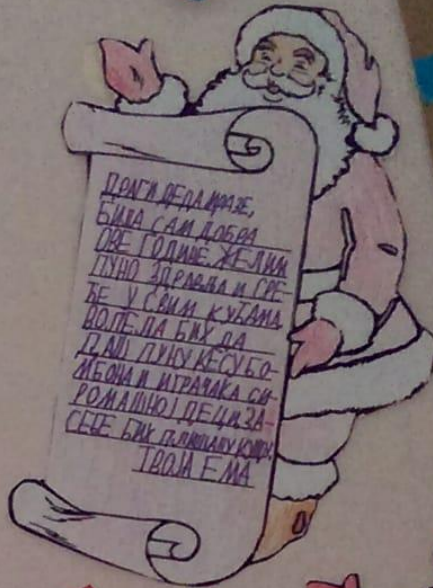 ДРАГИ ДЕДА МРАЗЕ,
БИЛА САМ ДОБРА
ОВЕ ГОДИНЕ. ЖЕЛИМ
ПУНО ЗДРАВЉА И СРЕ-
ЋЕ У СВИМ КУЋАМА.
ВОЛЕЛА БИХ ДА
ДАШ ПУНУ КЕСУ БО-
МБОНА И ИГРАЧАКА СИ-
РОМАШНОЈ ДЕЦИ. ЗА
СЕБЕ БИХ
ТВОЈА ЕМА